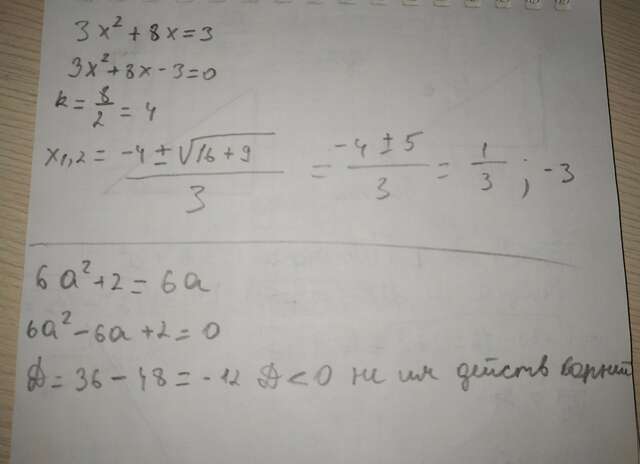 3x² + 8x = 3
3x² + 8x - 3 = 0
k = 8/2 = 4
x₁,₂ = (-4 ± √(16 + 9))/3 = (-4 ± 5)/3 = 1/3 ; -3
6a² + 2 = 6a
6a² - 6a + 2 = 0
Д = 36 - 48 = -12 Д < 0 не им действ корней